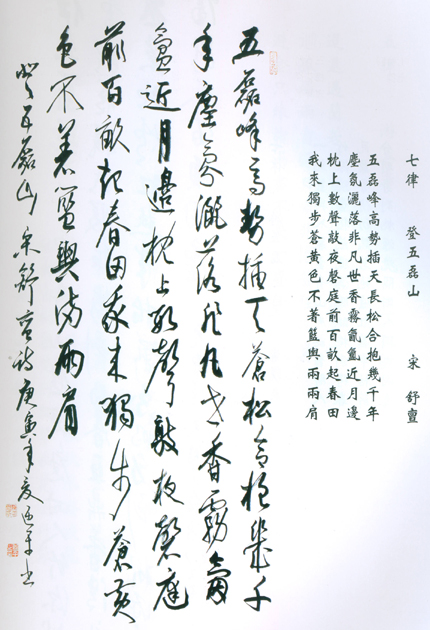 七律 登五磊山 宋 舒亶
五磊峰高勢插天長松合抱幾千年
塵氛灑落非凡世香霧氤氳近月邊
枕上數聲敲夜磬庭前百畝起春田
我來獨步蒼黃色不著籃輿兩兩肩
五磊峰高勢插天蒼松合抱幾千
年塵氛灑落非凡世香霧氤
氳近月邊枕上數聲敲夜磬庭
前百畝起春田我來獨步蒼黃
色不著籃輿兩肩
登五磊山宋舒亶詩庚寅年夏書